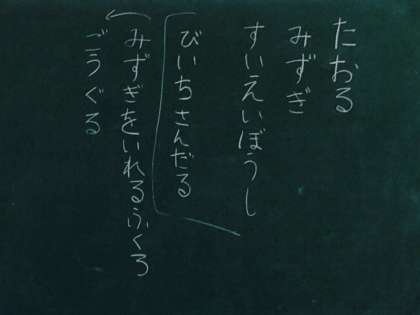 たおる
みずぎ
すいえいぼうし
びいちさんだる
みずぎをいれるふくろ
ごうぐる